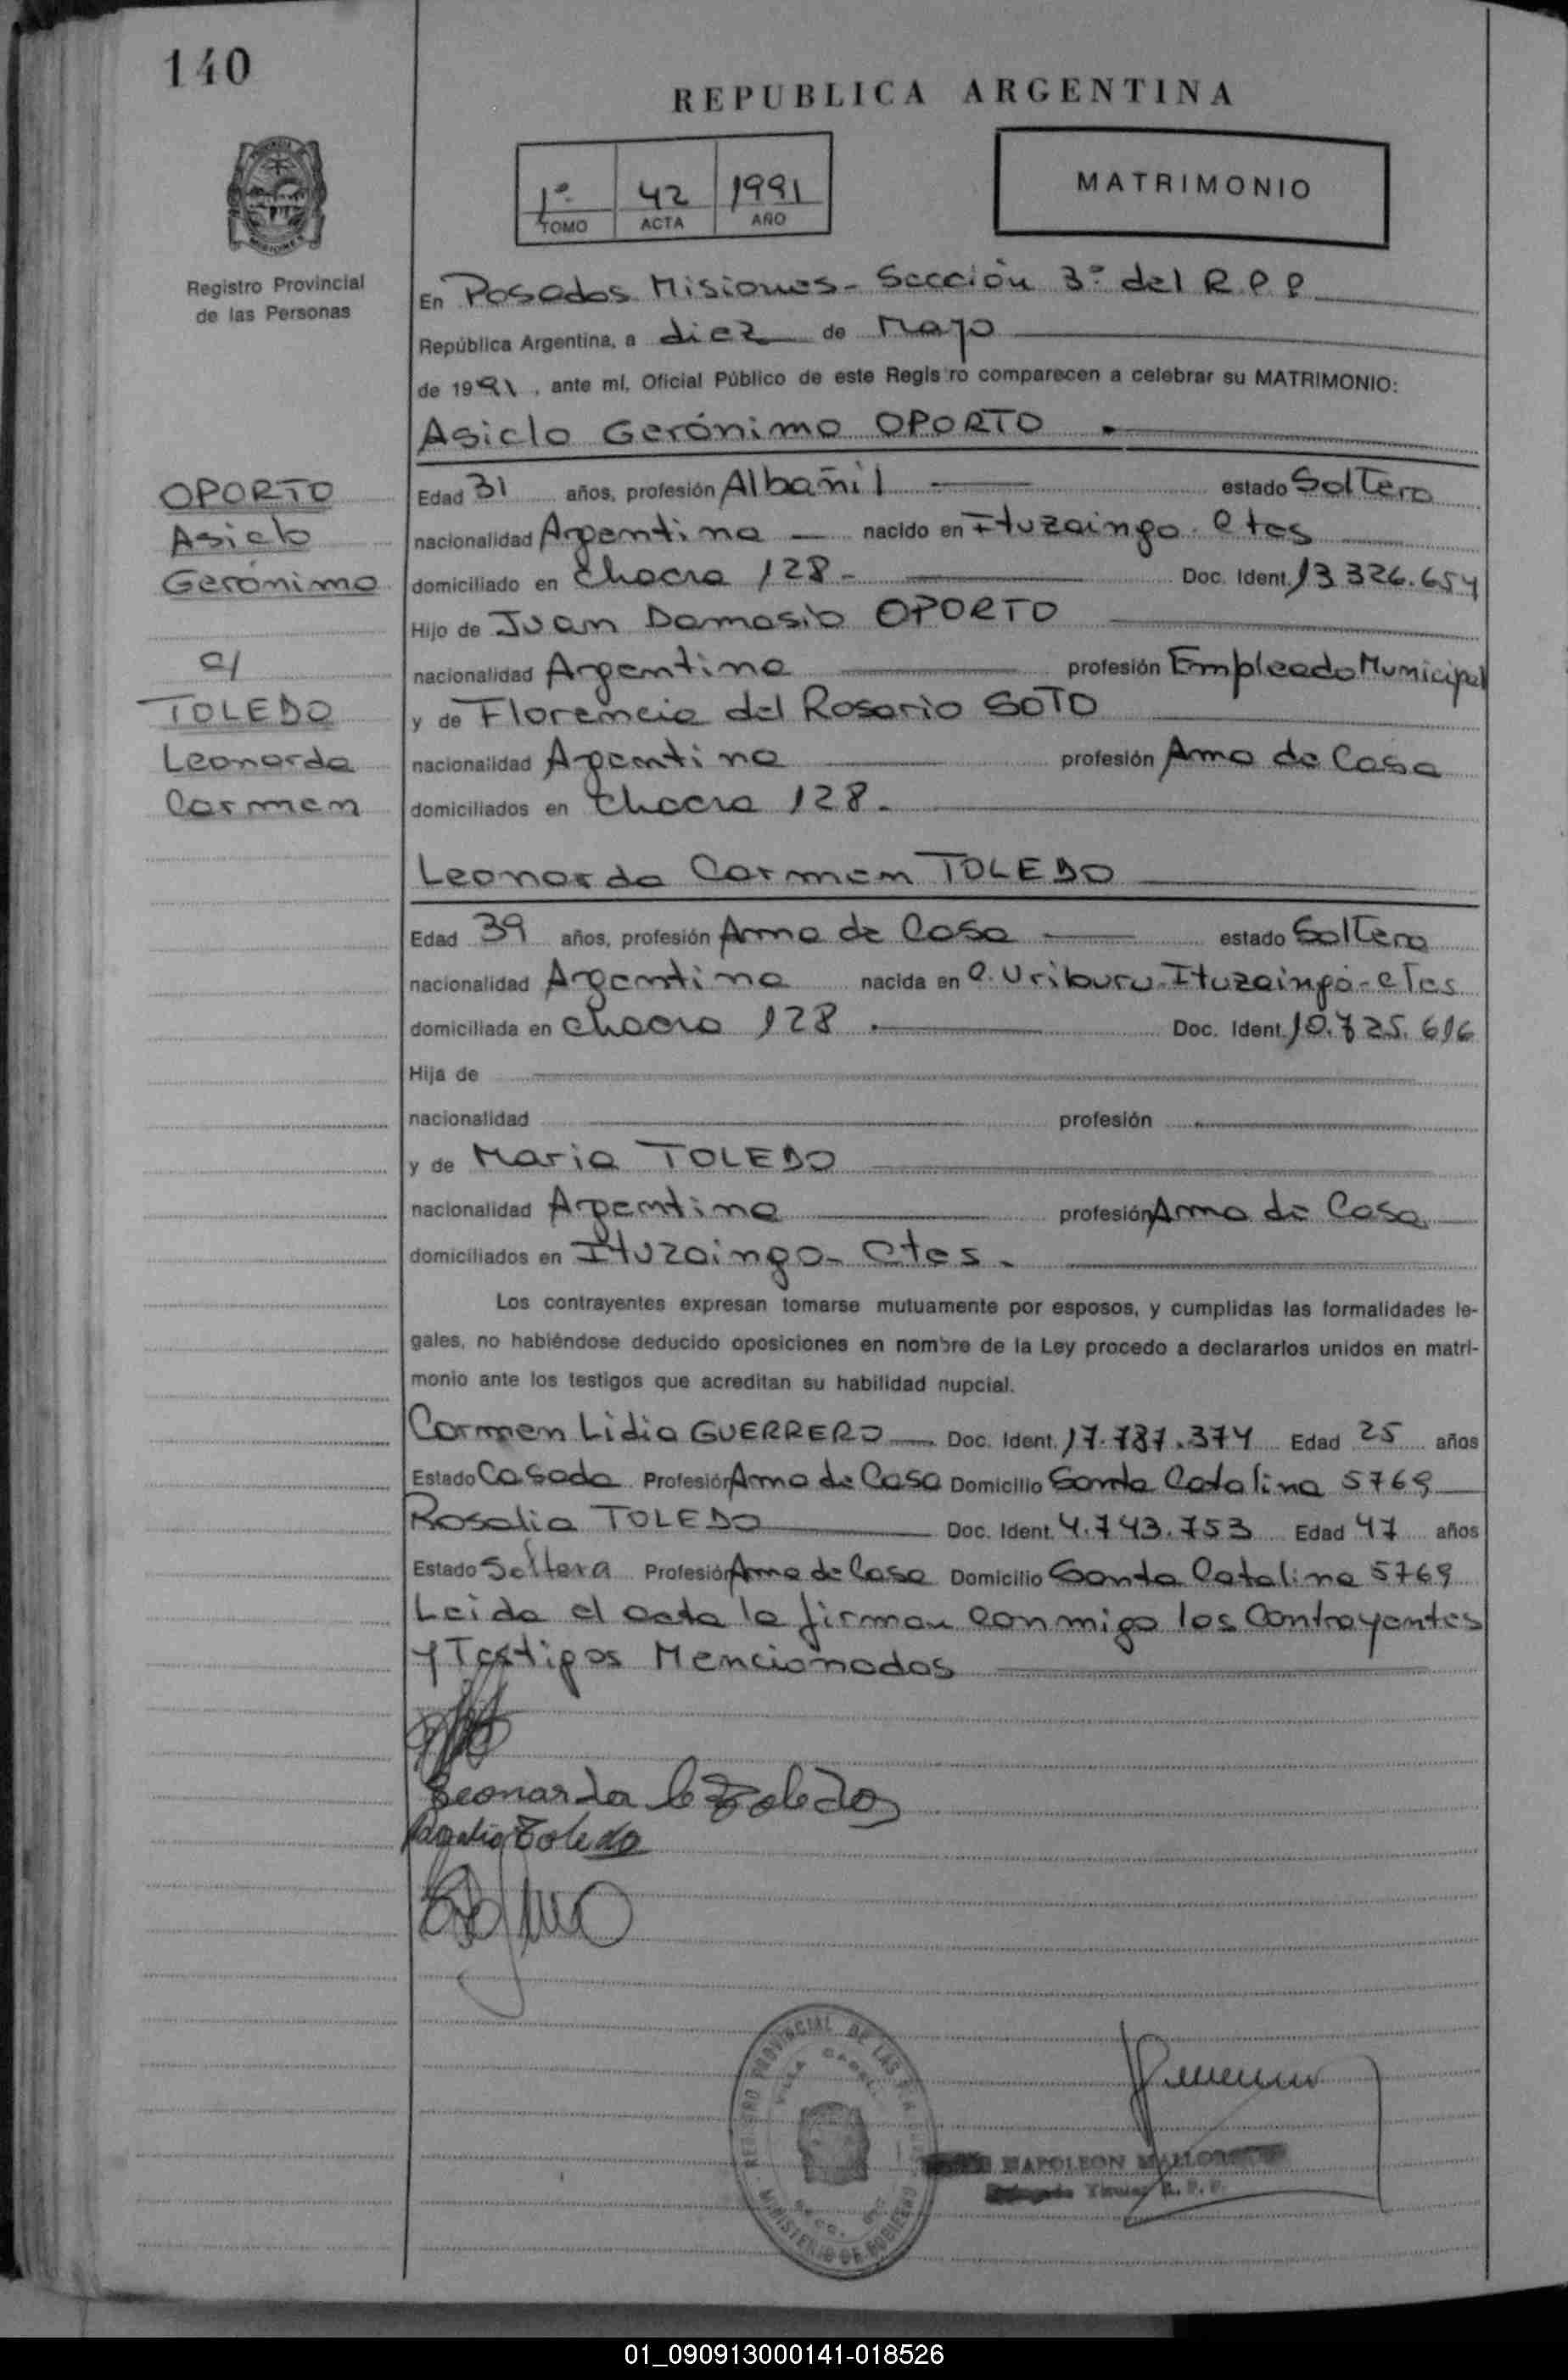 140
REPUBLICA ARGENTINA
1º 42 1991
TOMO ACTA AÑO
MATRIMONIO
Registro Provincial
de las Personas
En Posadas Misiones - Sección 3º del R.P.P
República Argentina, a diez de Mayo
de 1991, ante mí, Oficial Público de este Registro comparecen a celebrar su MATRIMONIO:
Asiclo Gerónimo OPORTO
OPORTO
Asiclo
Gerónimo
c/
TOLEDO
Leonarda
Carmen
Edad 31 años, profesión Albañil estado Soltero
nacionalidad Argentina nacido en Ituzaingo. Ctes
domiciliado en Chacra 128 - Doc. Ident. 13 326.654
Hijo de Juan Damasio OPORTO
nacionalidad Argentina profesión Empleado Municipal
y de Florencia del Rosario SOTO
nacionalidad Argentina profesión Ama de Casa
domiciliados en Chacra 128.
Leonarda Carmen TOLEDO
Edad 39 años, profesión Ama de Casa estado Soltera
nacionalidad Argentina nacida en C. Uriburu - Ituzaingó - Ctes
domiciliada en Chacra 128. Doc. Ident. 10.725.616
Hija de
nacionalidad profesión
y de Maria TOLEDO
nacionalidad Argentina profesión Ama de Casa
domiciliados en Ituzaingo - Ctes.
Los contrayentes expresan tomarse mutuamente por esposos, y cumplidas las formalidades le-
gales, no habiéndose deducido oposiciones en nombre de la Ley procedo a declararlos unidos en matri-
monio ante los testigos que acreditan su habilidad nupcial.
Carmen Lidia GUERRERO Doc. Ident. 17.787.374 Edad 25 años
Estado Casada Profesión Ama de Casa Domicilio Santa Catalina 5769
Rosalia TOLEDO Doc. Ident. 4.743.753 Edad 47 años
Estado Soltera Profesión Ama de Casa Domicilio Santa Catalina 5769
Leida el acta la firman conmigo los Contrayentes
y Testigos Mencionados
Leonarda C Toledo
Rosalia Toledo
REGISTRO PROVINCIAL DE LAS
MINISTERIO DE GOBIERNO
NAPOLEON
Titular R. P. P.
01_090913000141-018526